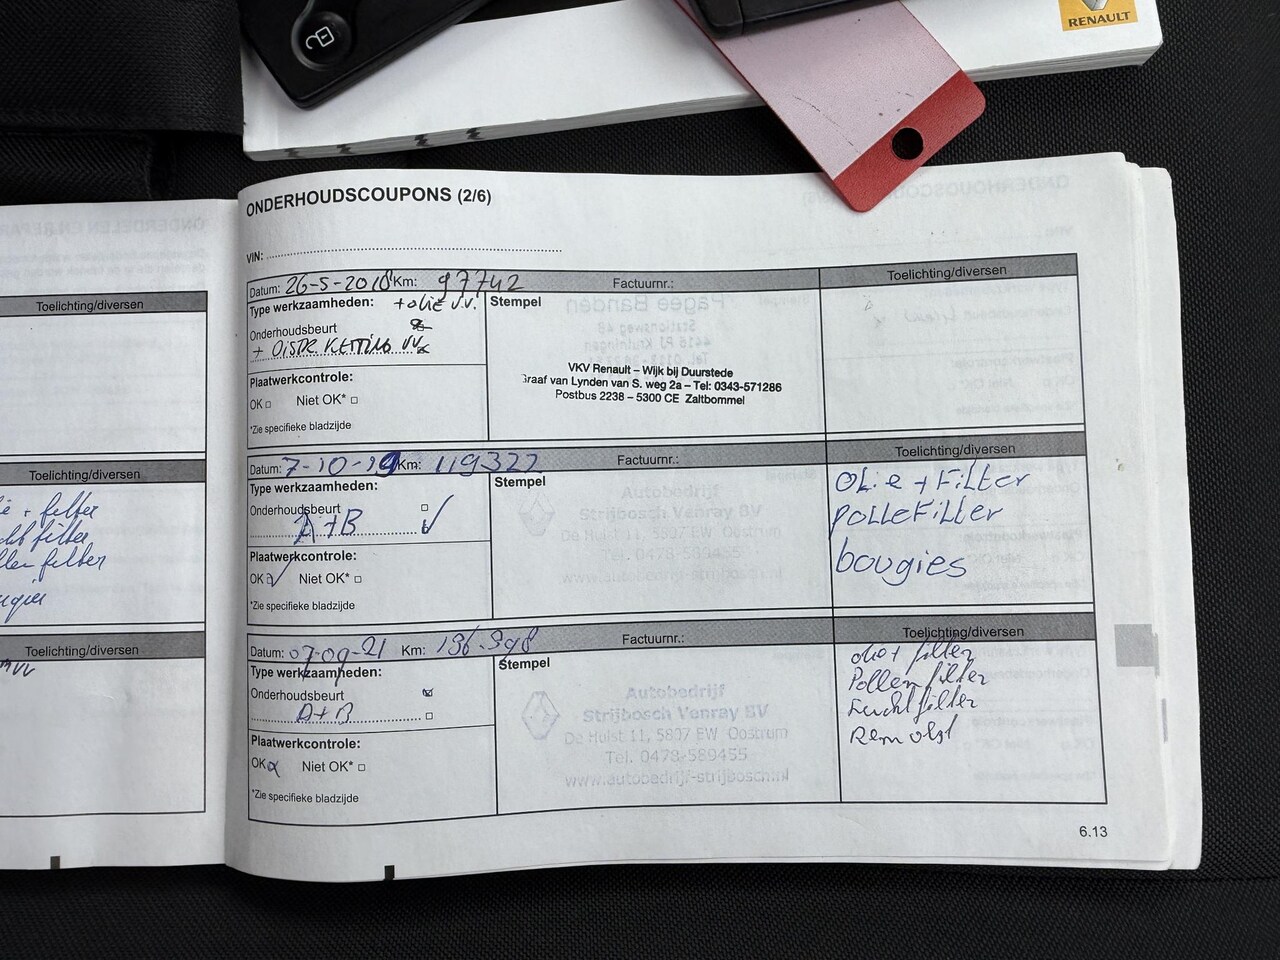 RENAULT
ONDERHOUDSCOUPONS (2/6)
VIN:
Datum: 26-5-2018 Km: 97742 Factuurnr.: Toelichting/diversen
Type werkzaamheden: + olie v.v. Stempel
Onderhoudsbeurt
+ DISTR. KETTING VV
VKV Renault – Wijk bij Duurstede
Graaf van Lynden van S. weg 2a – Tel: 0343-571286
Postbus 2238 – 5300 CE Zaltbommel
Plaatwerkcontrole:
OK Niet OK*
*Zie specifieke bladzijde
Datum: 7-10-19 Km: 119322 Factuurnr.: Toelichting/diversen
Type werkzaamheden: Stempel
Onderhoudsbeurt
A+B
Autobedrijf
Strijbosch Venray BV
De Hulst 11, 5807 EW Oostrum
Tel. 0478-589455
www.autobedrijf-strijbosch.nl
Olie + Filter
polleFilter
bougies
Plaatwerkcontrole:
OK Niet OK*
*Zie specifieke bladzijde
Datum: 07-09-21 Km: 136.398 Factuurnr.: Toelichting/diversen
Type werkzaamheden: Stempel
Onderhoudsbeurt
A+B
Autobedrijf
Strijbosch Venray BV
De Hulst 11, 5807 EW Oostrum
Tel. 0478-589455
www.autobedrijf-strijbosch.nl
olie + filter
Pollenfilter
Luchtfilter
Remvlst
Plaatwerkcontrole:
OK Niet OK*
*Zie specifieke bladzijde
6.13
Toelichting/diversen
Toelichting/diversen
+ filter
filter
filter
Toelichting/diversen